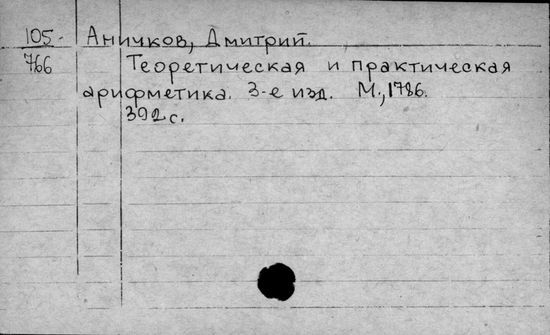 105- Аничков, Дмитрий.
766 Теоретическая и практическая
арифметика. 3-е изд. М., 1786.
392 с.